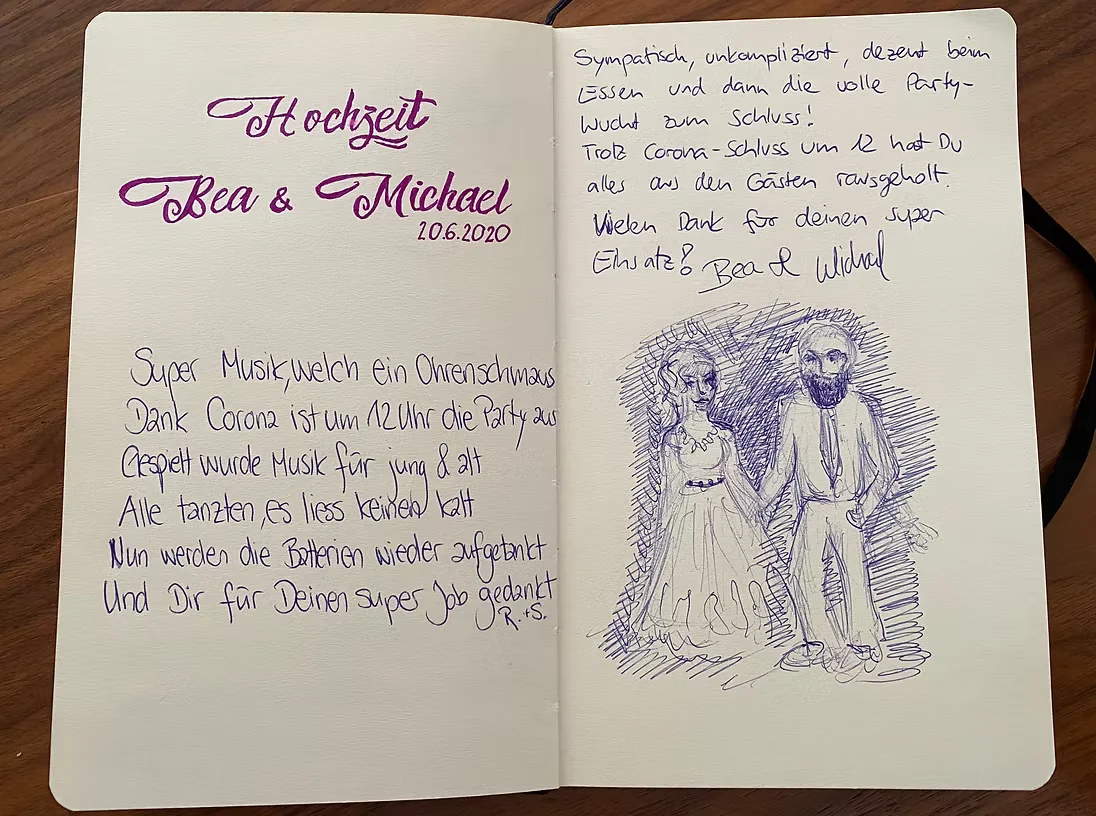 Hochzeit
Bea & Michael
20.6.2020
Super Musik, welch ein Ohrenschmaus
Dank Corona ist um 12 Uhr die Party aus
Gespielt wurde Musik für jung & alt
Alle tanzten, es liess keinen kalt
Nun werden die Batterien wieder aufgetankt
Und Dir für Deinen super Job gedankt
R. + S.
Sympatisch, unkompliziert, dezent beim
Essen und dann die volle Party-
Wucht zum Schluss!
Trotz Corona-Schluss um 12 hast Du
alles aus den Gästen rausgeholt.
Vielen Dank für deinen super
Einsatz! Bea & Michael